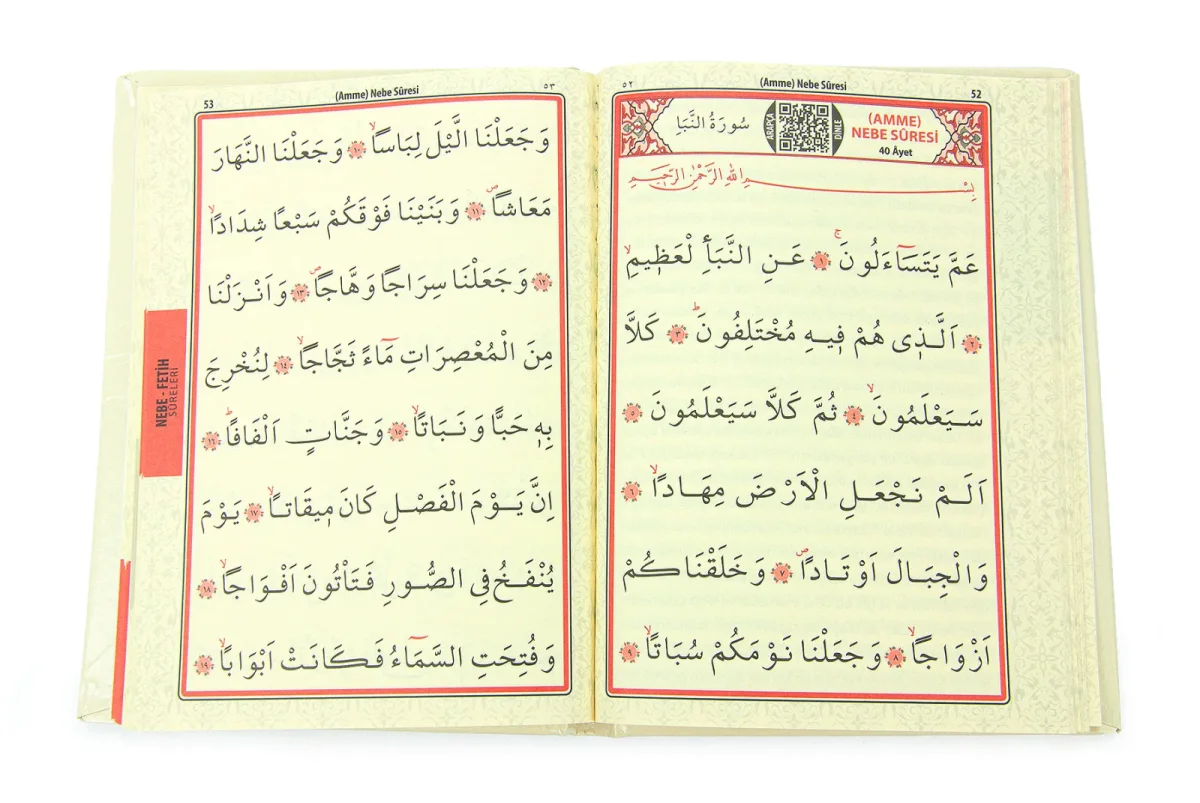 ٥٢ (Amme) Nebe Sûresi 52
سُورَةُ النَّبَأِ
ARAPÇA DİNLE
(AMME)
NEBE SÛRESİ
40 Âyet
بِسْمِ اللّٰهِ الرَّحْمٰنِ الرَّح۪يمِ
عَمَّ يَتَسَٓاءَلُونَۚ ﴿١﴾ عَنِ النَّبَأِ لْعَظ۪يمِۙ
﴿٢﴾ اَلَّذ۪ى هُمْ ف۪يهِ مُخْتَلِفُونَۜ ﴿٣﴾ كَلَّا
سَيَعْلَمُونَۙ ﴿٤﴾ ثُمَّ كَلَّا سَيَعْلَمُونَ ﴿٥﴾
اَلَمْ نَجْعَلِ الْاَرْضَ مِهَادًاۙ ﴿٦﴾
وَالْجِبَالَ اَوْتَادًاۖ ﴿٧﴾ وَخَلَقْنَاكُمْ
اَزْوَاجًاۙ ﴿٨﴾ وَجَعَلْنَا نَوْمَكُمْ سُبَاتًاۙ ﴿٩﴾
53 (Amme) Nebe Sûresi ٥٣
وَجَعَلْنَا الَّيْلَ لِبَاسًاۙ ﴿١٠﴾ وَجَعَلْنَا النَّهَارَ
مَعَاشًاۖ ﴿١١﴾ وَبَنَيْنَا فَوْقَكُمْ سَبْعًا شِدَادًاۙ
﴿١٢﴾ وَجَعَلْنَا سِرَاجًا وَهَّاجًاۖ ﴿١٣﴾ وَاَنْزَلْنَا
مِنَ الْمُعْصِرَاتِ مَٓاءً ثَجَّاجًاۙ ﴿١٤﴾ لِنُخْرِجَ
بِه۪ حَبًّا وَنَبَاتًاۙ ﴿١٥﴾ وَجَنَّاتٍ اَلْفَافًاۜ ﴿١٦﴾
اِنَّ يَوْمَ الْفَصْلِ كَانَ م۪يقَاتًاۙ ﴿١٧﴾ يَوْمَ
يُنْفَخُ فِى الصُّورِ فَتَأْتُونَ اَفْوَاجًاۙ ﴿١٨﴾
وَفُتِحَتِ السَّمَٓاءُ فَكَانَتْ اَبْوَابًاۙ ﴿١٩﴾
NEBE - FETİH
SÛRELERİ